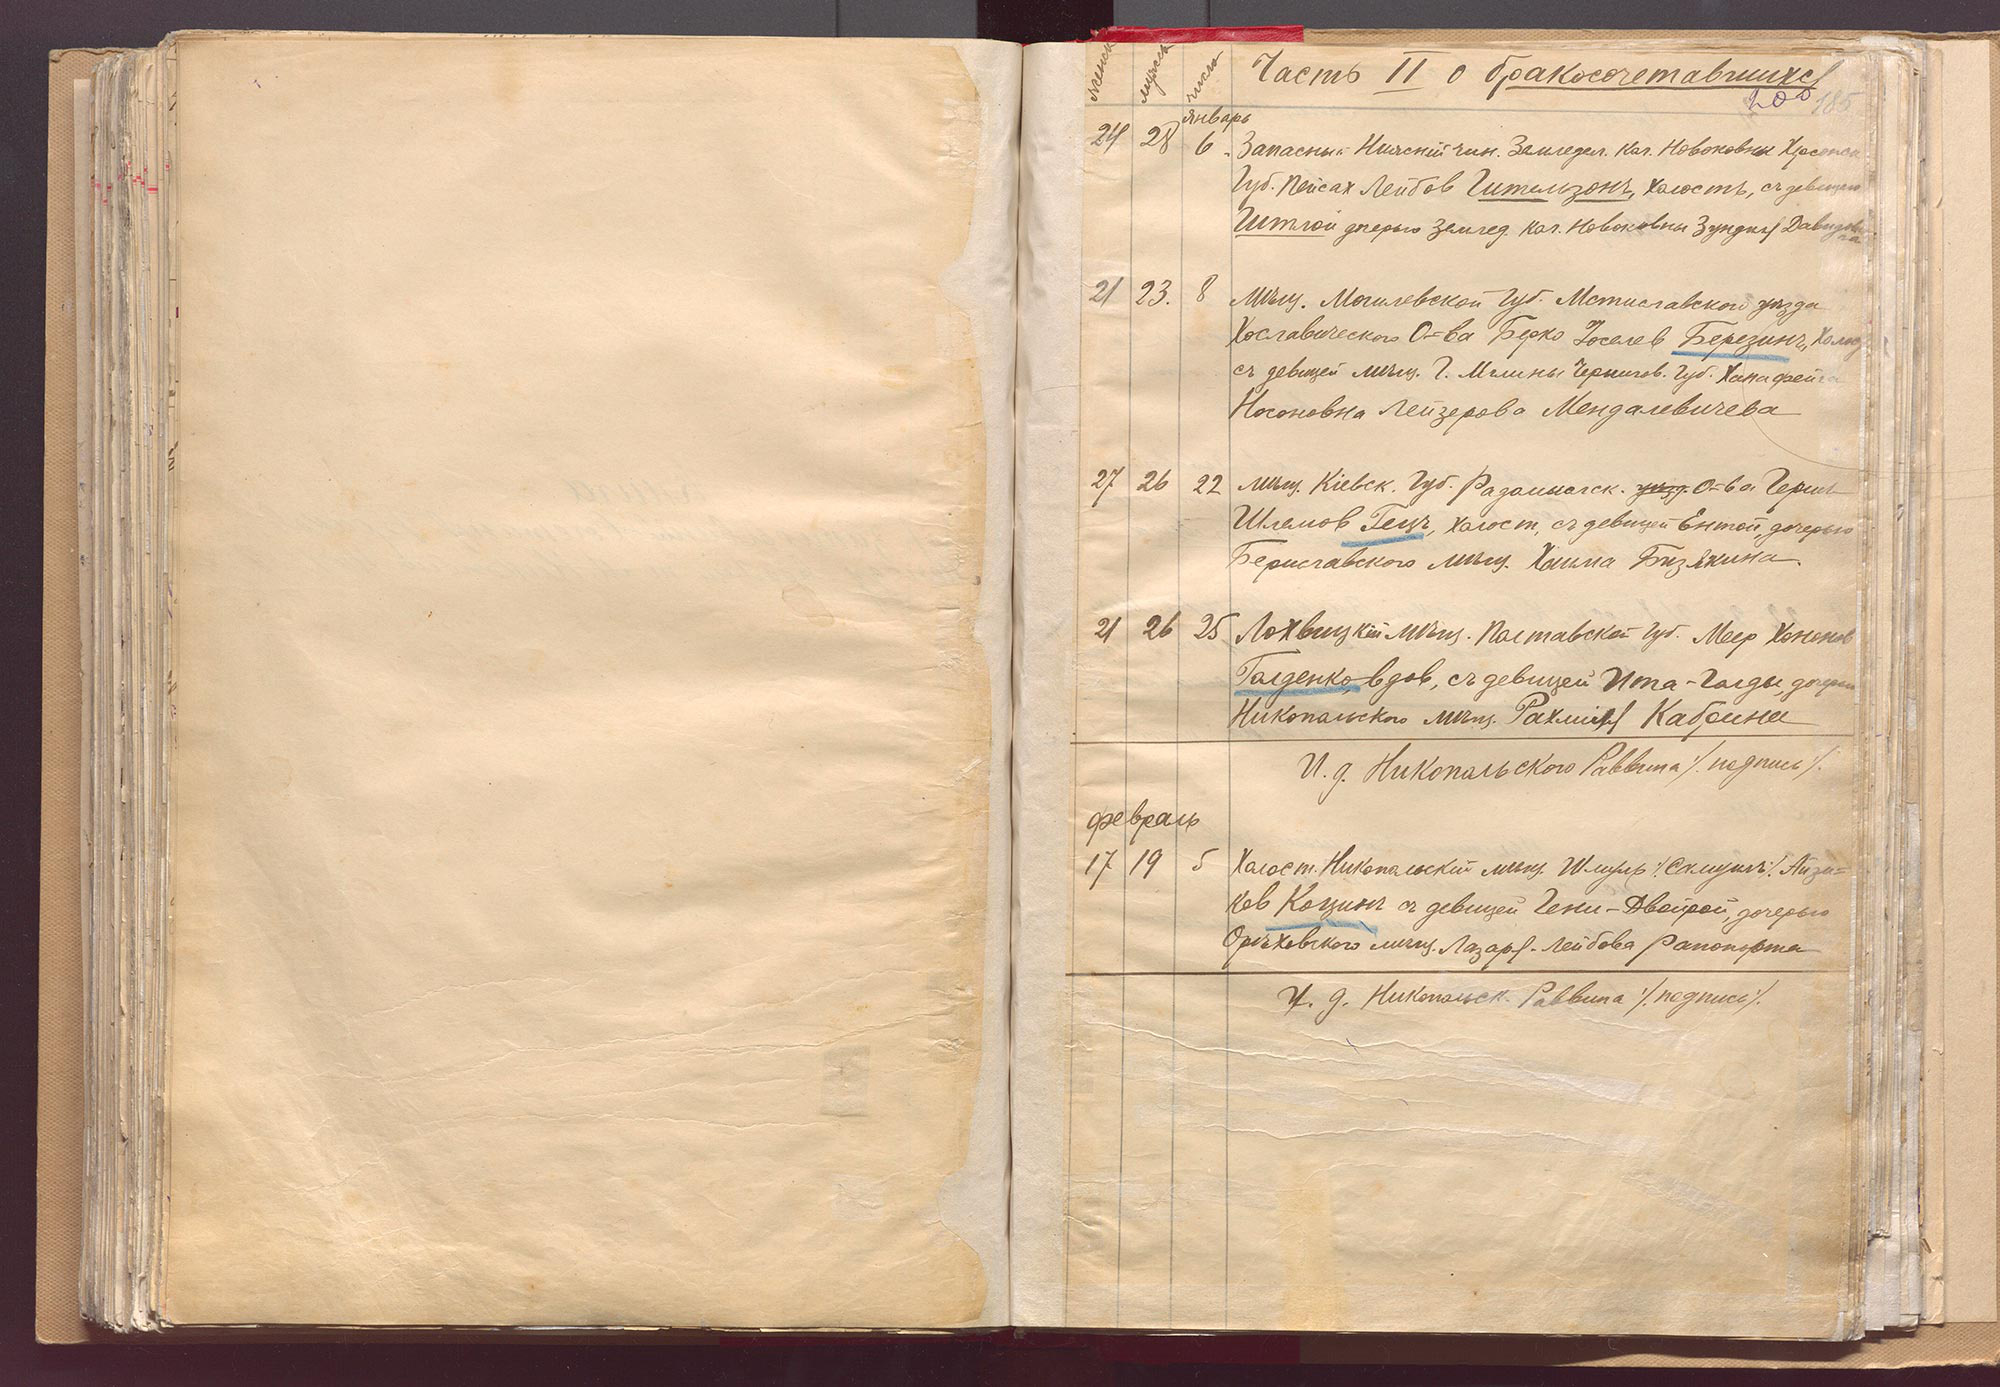 Часть II о бракосочетавшихся
женск мужск число
200 185
Январь
24 28 6 Запасный Нижній чин. Земледел. кол. Новоковны Херсонск
Губ. Пейсах Лейбов Гительзонъ, холостъ, съ девицей
Гитлой дочерью Землед. кол. Новоковны Зунделя Давидови
21 23. 8 мѣщ. Могилевской Губ. Мстиславского уѣзда
Хославического О-ва Берко Іоселев Березинъ, Холос
съ девицей мѣщ. Г. Мглины Чернигов. Губ. Хана Фейга
Носоновна Лейзерова Мендалевичева
27 26 22 мѣщ. Кіевск. Губ. Радомысльск. уезд. О-ва Герш
Шлемов Гецъ, холост, съ девицей Ентой, дочерью
Бериславского мѣщ. Хаима Бизякина.
21 26 25 Лохвицкій мѣщ. Полтавской Губ. Меер Хононов
Голденко, вдов, съ девицей Ита-Голды, дочери
Никопальского мѣщ. Рахмиля Кабрина
И. д. Никопальского Раввина /. подпись /.
Февраль
17 19 5 Холост. Никопальскій мѣщ. Шмуль /. Самуилъ /. Айзи=
ков Коцинъ съ девицей Гени-Двойрой, дочерью
Орѣховского мѣщ. Лазаря-Лейбова Рапопорта
И. д. Никопальск. Раввина /. подпись /.